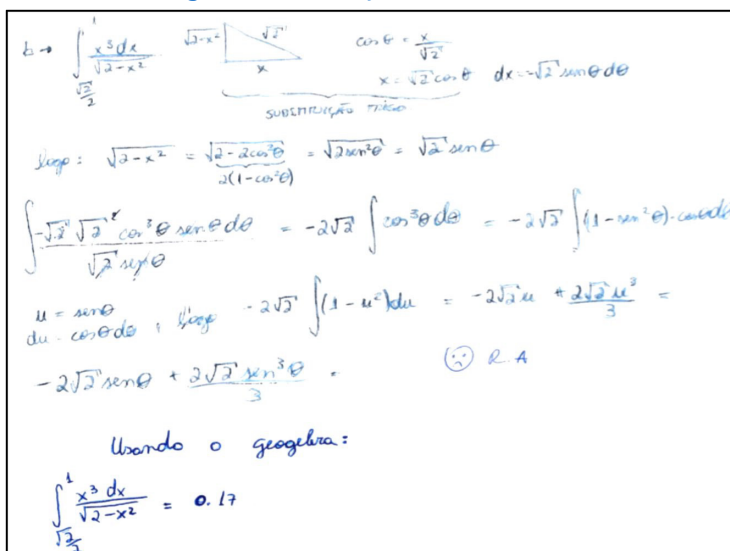 b → ∫_{√2/2}^{1} x³dx/√(2-x²) √(2-x²) √2 x cosθ = x/√2
x = √2 cosθ dx = -√2 senθ dθ
SUBSTITUIÇÃO TRIGO
logo: √(2-x²) = √(2-2cos²θ) = √(2sen²θ) = √2 senθ
2(1-cos²θ)
∫ -√2 √2³ cos³θ senθ dθ / √2 senθ = -2√2 ∫ cos³θ dθ = -2√2 ∫ (1-sen²θ)·cosθdθ
u = senθ
du = cosθdθ, logo -2√2 ∫(1-u²)du = -2√2u + 2√2u³/3 =
-2√2 senθ + 2√2 sen³θ/3 = R.A
Usando o geogebra:
∫_{√2/2}^{1} x³ dx/√(2-x²) = 0.17